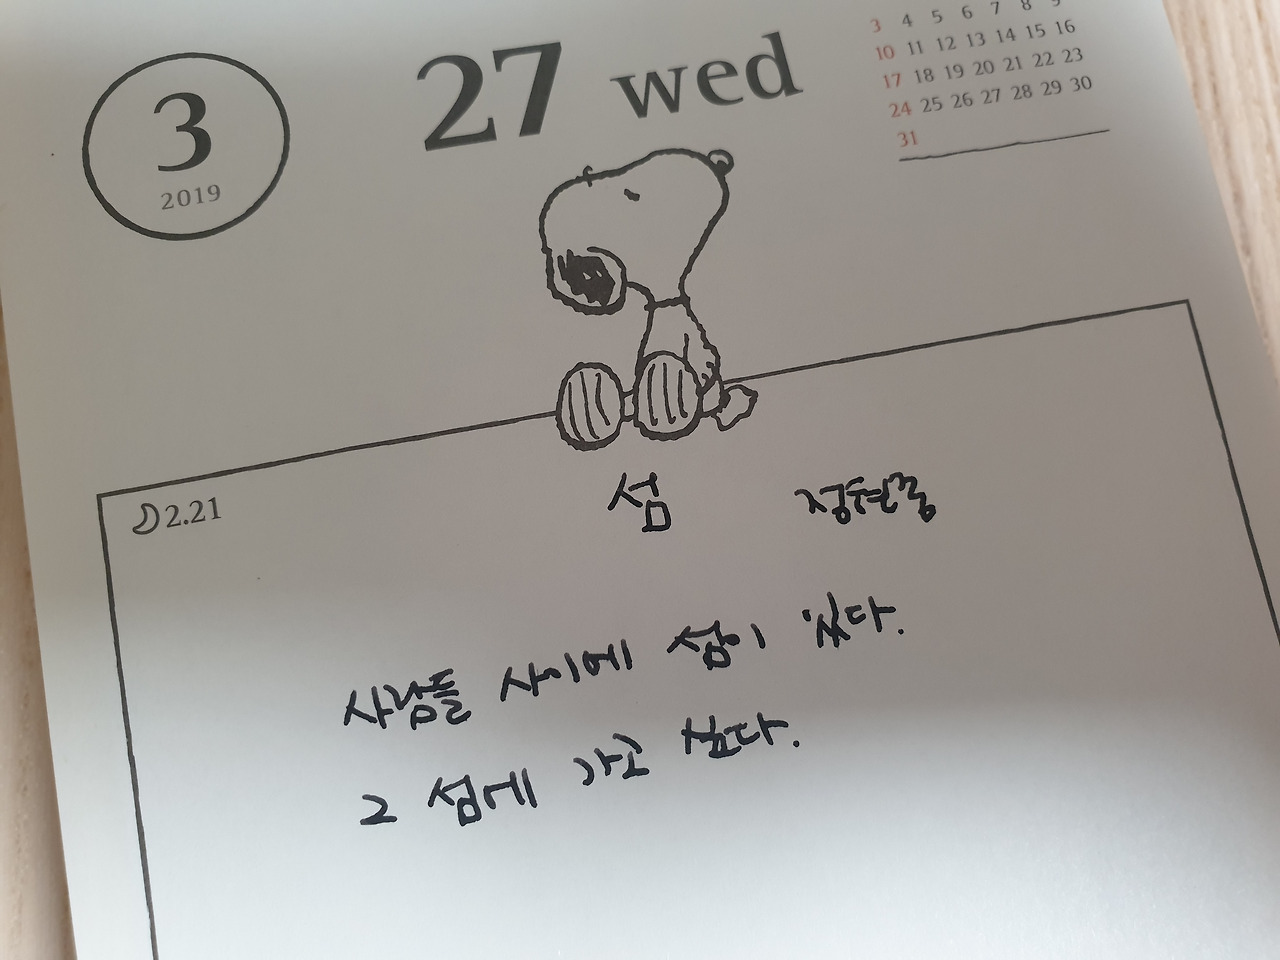 3
2019
27 wed
3 4 5 6 7 8 9
10 11 12 13 14 15 16
17 18 19 20 21 22 23
24 25 26 27 28 29 30
31
2.21
섬 정현종
사람들 사이에 섬이 있다.
그 섬에 가고 싶다.